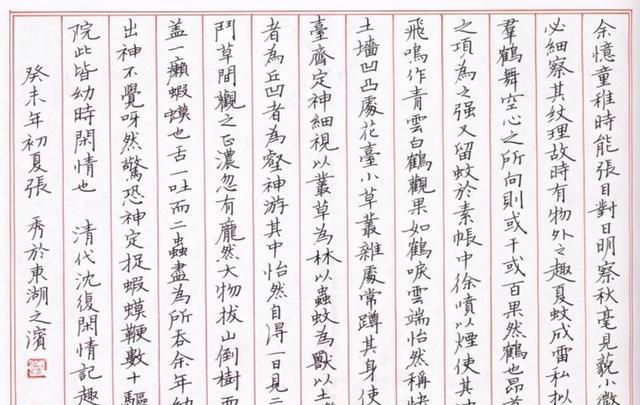 余憶童稚時能張目對日明察秋毫見藐小微
必細察其紋理故時有物外之趣夏蚊成雷私拟
羣鶴舞空心之所向則或千或百果然鶴也昂首
之項為之强又留蚊於素帳中徐噴以煙使其冲
飛鳴作青雲白鶴觀果如鶴唳雲端怡然稱快
土墻凹凸處花臺小草叢雜處常蹲其身使
臺齊定神細視以叢草為林以蟲蚊為獸以土
者為丘凹者為壑神游其中怡然自得一日見二
鬥草間觀之正濃忽有龐然大物拔山倒樹而
盖一癩蝦蟆也舌一吐而二蟲盡為所吞余年幼
出神不覺呀然驚恐神定捉蝦蟆鞭數十驅
院此皆幼時閑情也 清代沈復閑情記趣
癸未年初夏張秀於東湖之濱